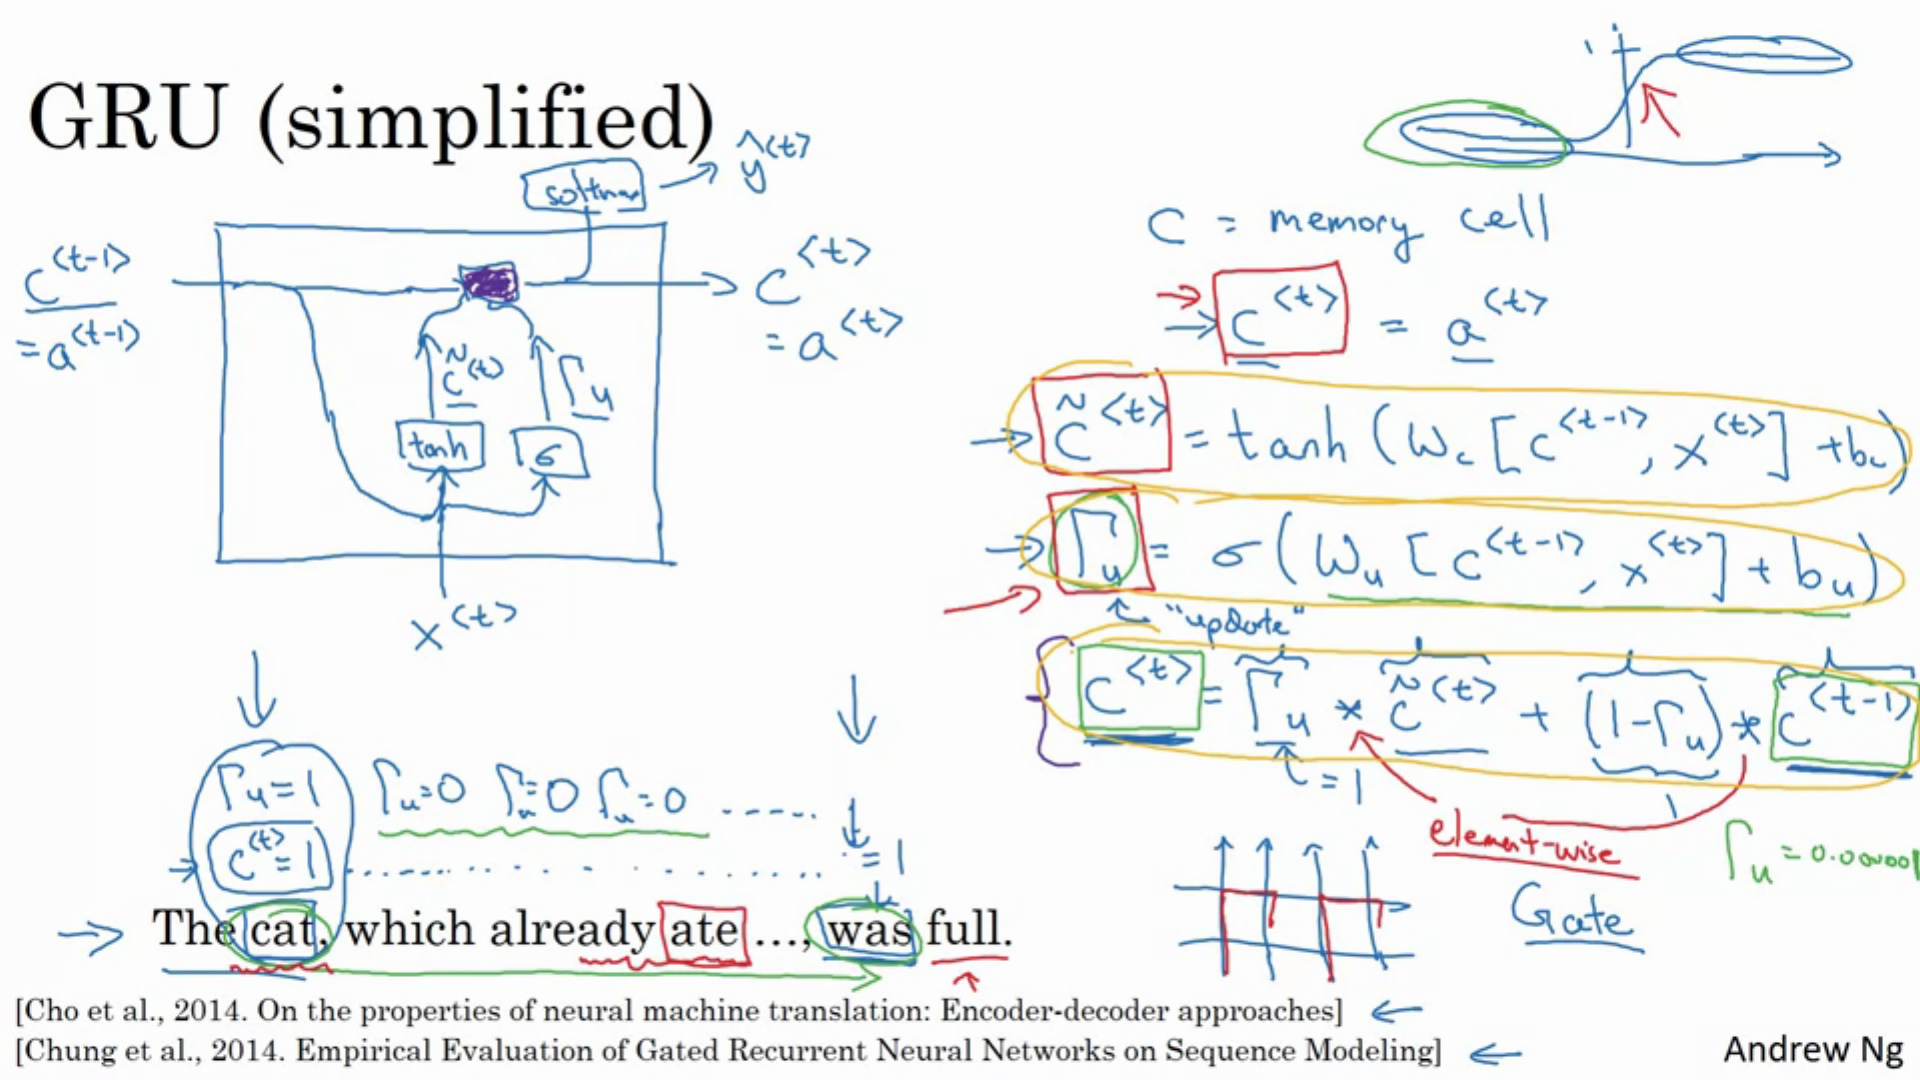 GRU (simplified)
softmax → ŷ^<t>
c^<t-1>
= a^<t-1>
c^<t>
= a^<t>
c̃^<t>
Γu
tanh
σ
x^<t>
1
C = memory cell
c^<t> = a^<t>
c̃^<t> = tanh (Wc [c^<t-1>, x^<t>] + bc)
Γu = σ (Wu [c^<t-1>, x^<t>] + bu)
"update"
c^<t> = Γu * c̃^<t> + (1-Γu) * c^<t-1>
= 1
element-wise
Γu = 0.000001
Gate
Γu=1 Γu=0 Γu=0 Γu=0 ......
c^<t>=1 ........... = 1
The cat, which already ate ..., was full.
[Cho et al., 2014. On the properties of neural machine translation: Encoder-decoder approaches] ←
[Chung et al., 2014. Empirical Evaluation of Gated Recurrent Neural Networks on Sequence Modeling] ←
Andrew Ng